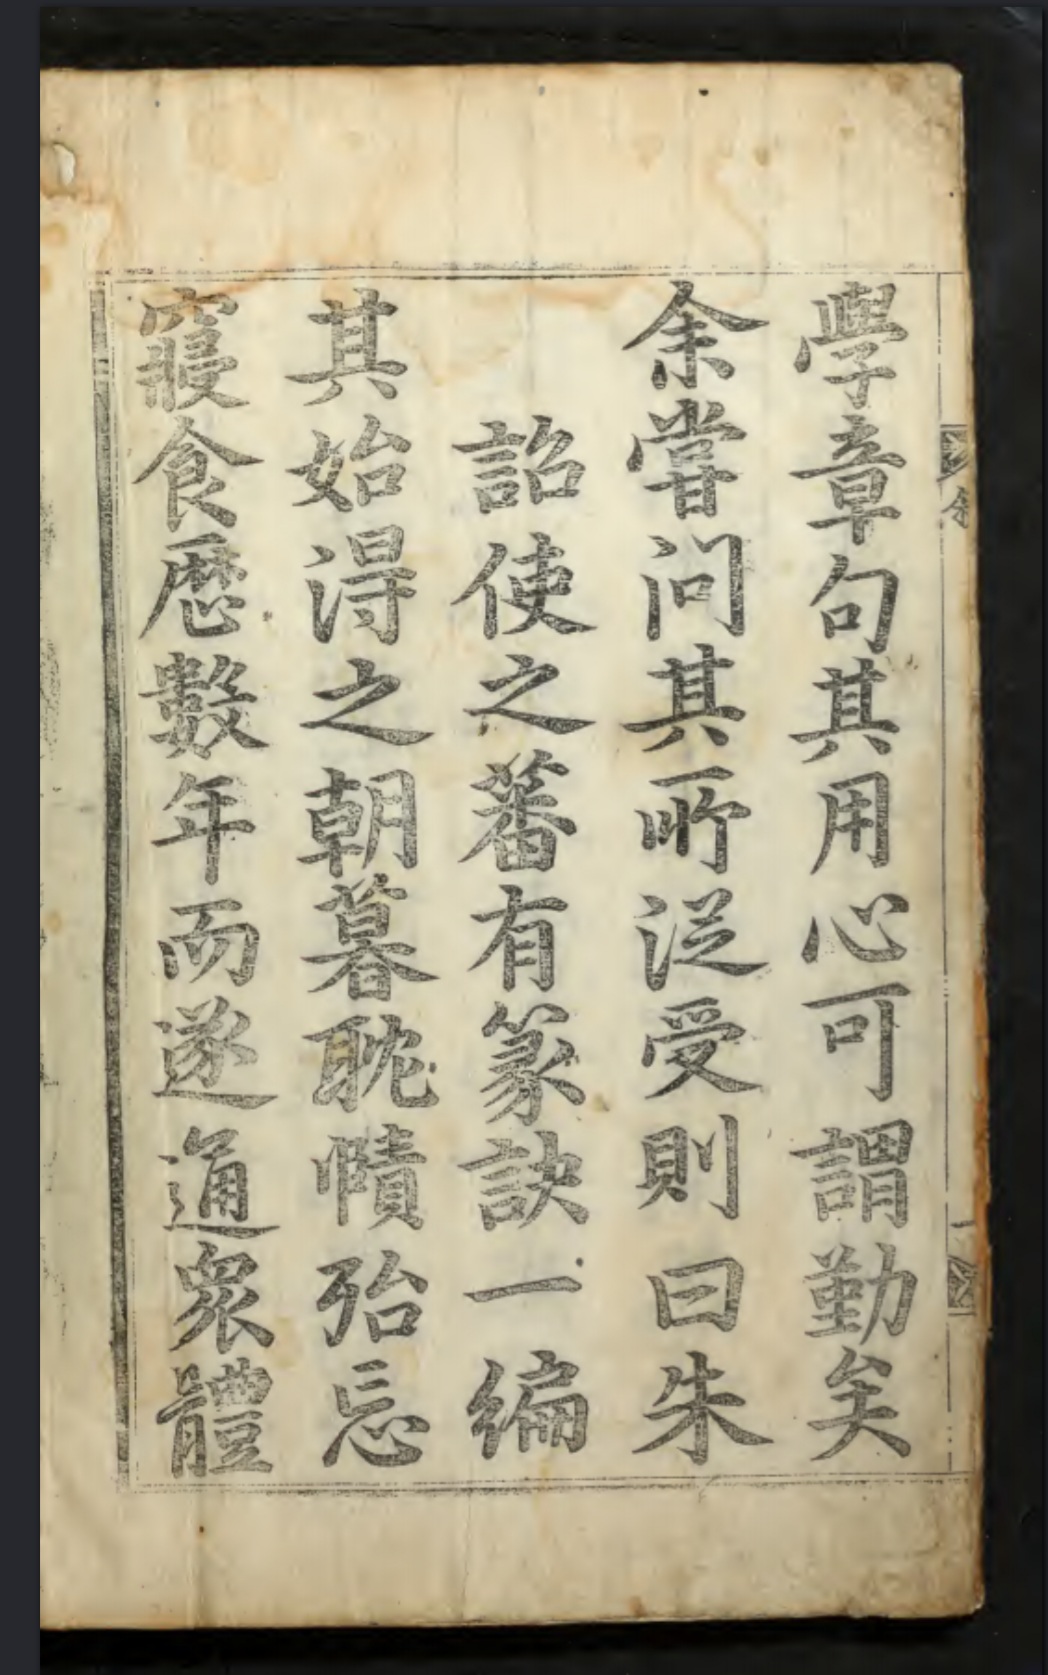 學章句其用心可謂勤矣
余嘗問其所從受則曰朱
詔使之蕃有篆訣一編
其始得之朝暮耽賾殆忘
寢食歷數年而遂通衆體